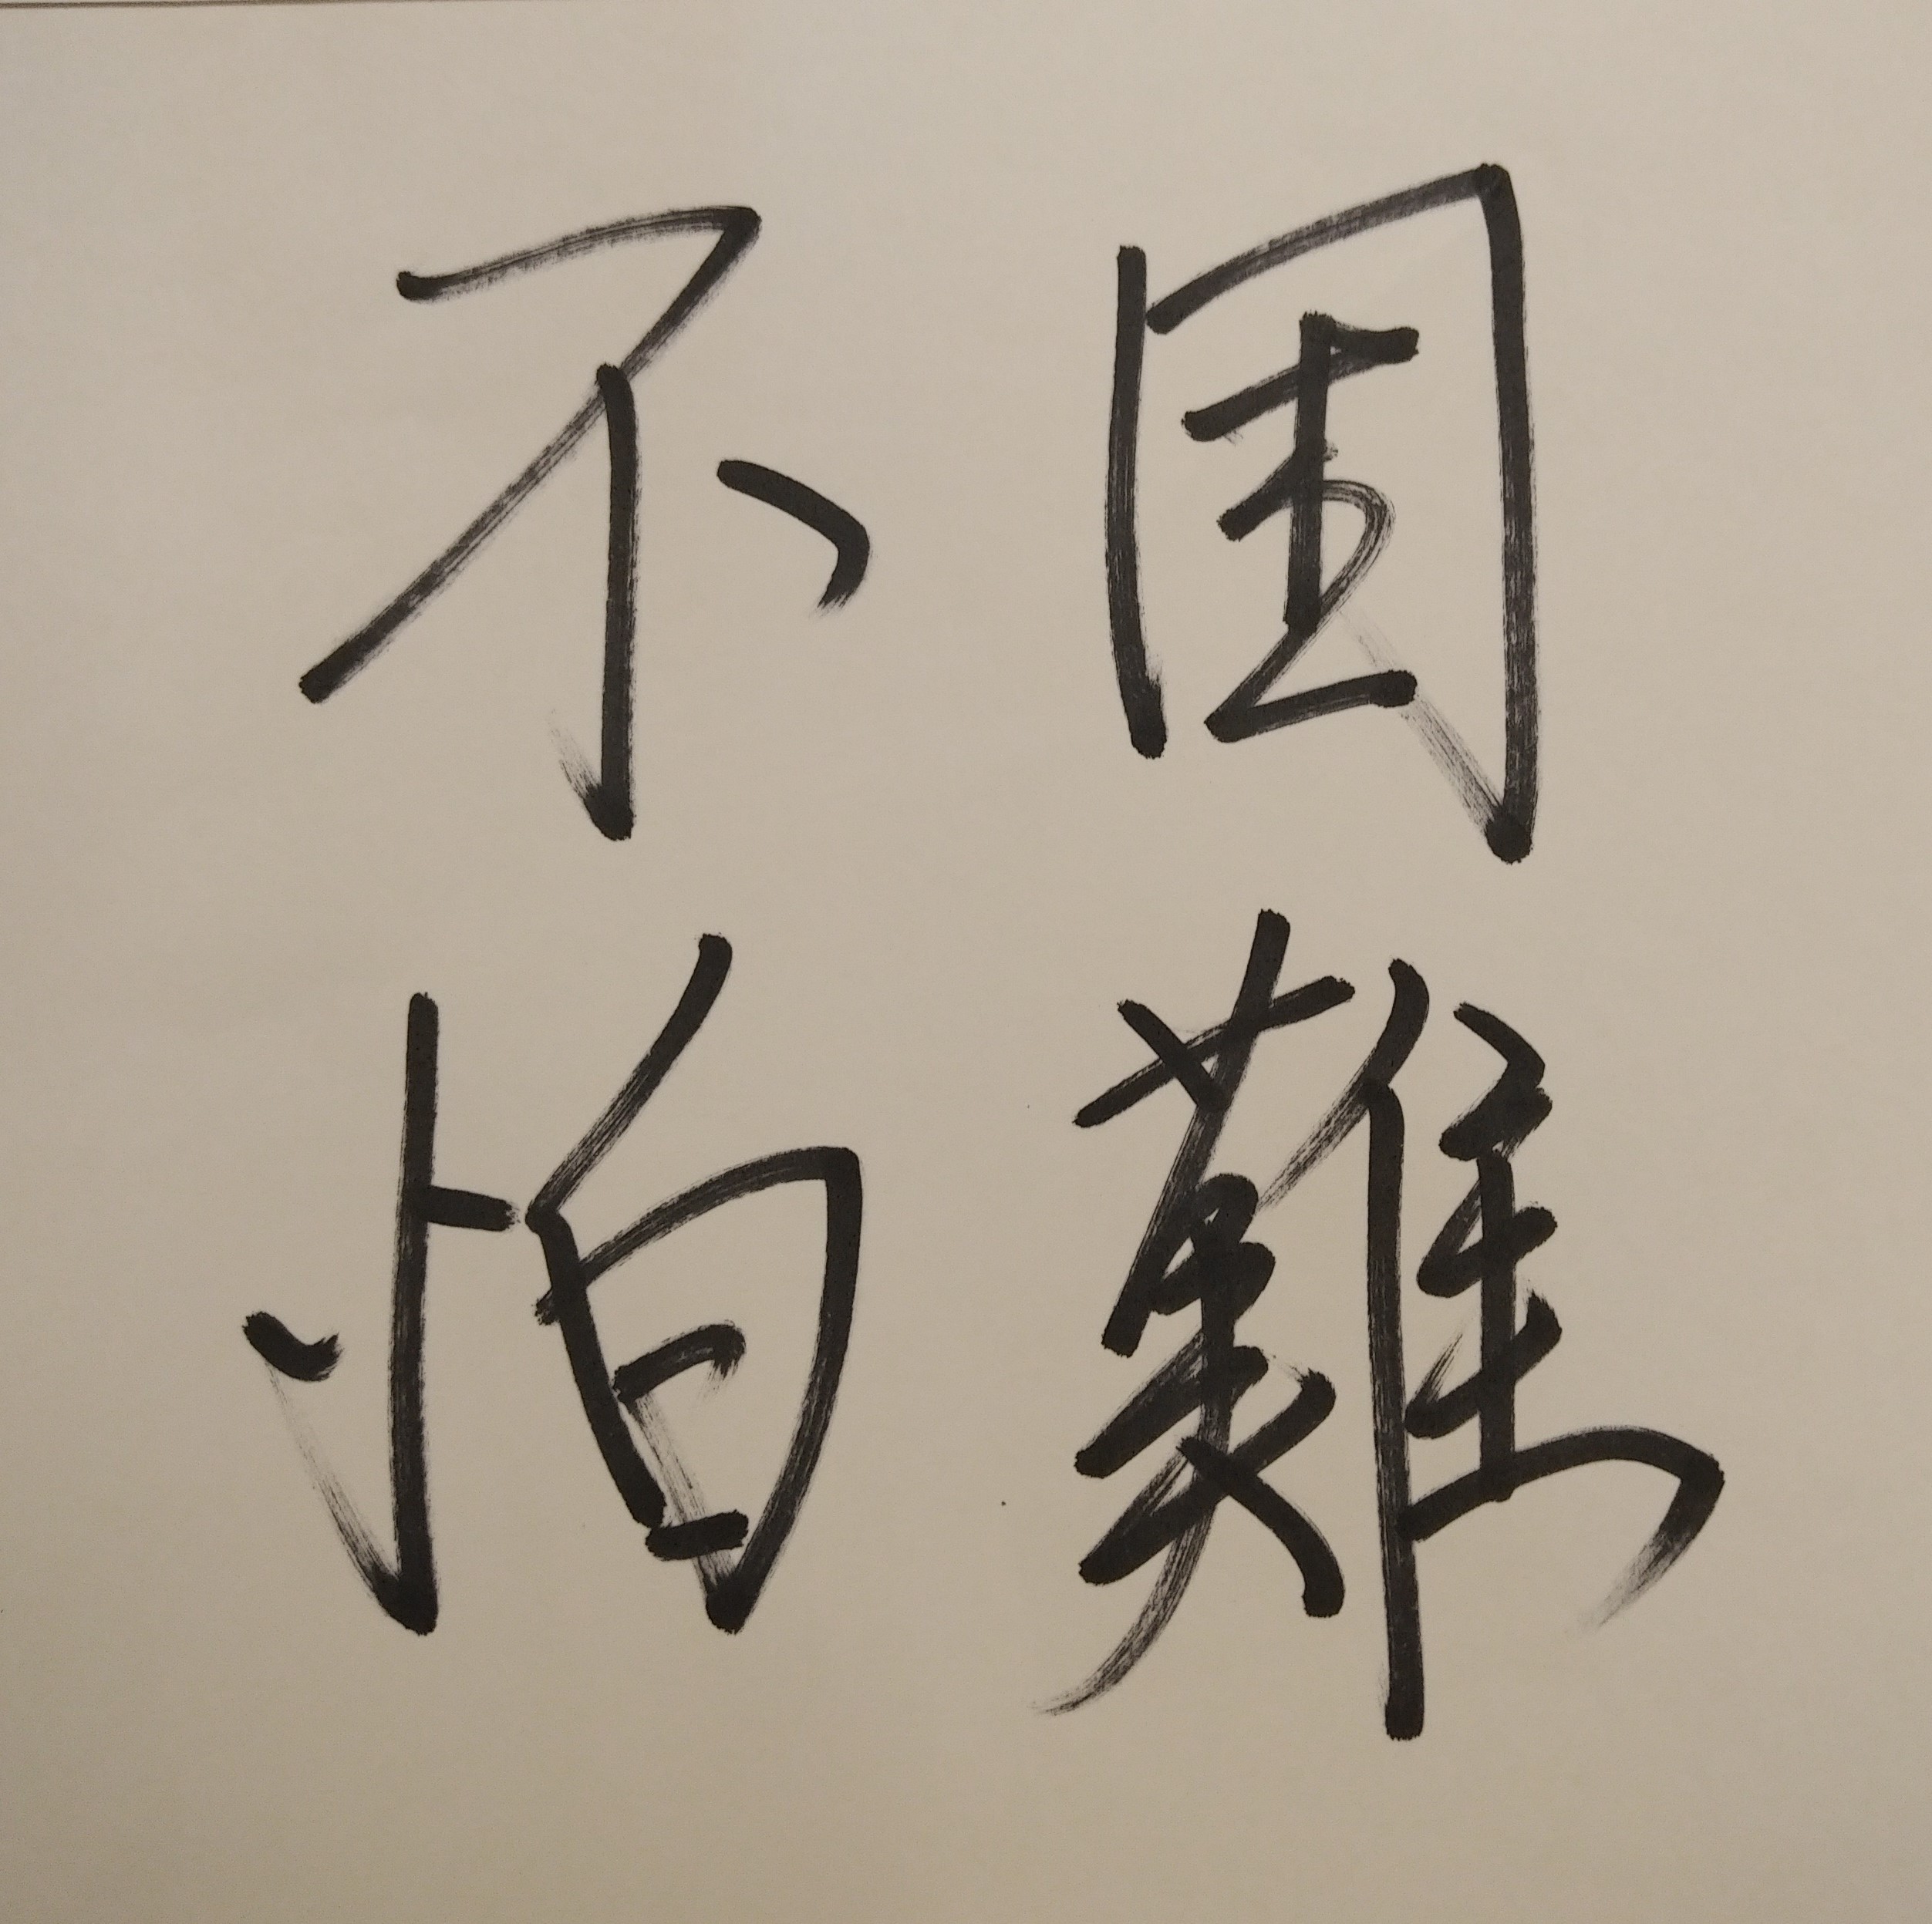 困難
不怕